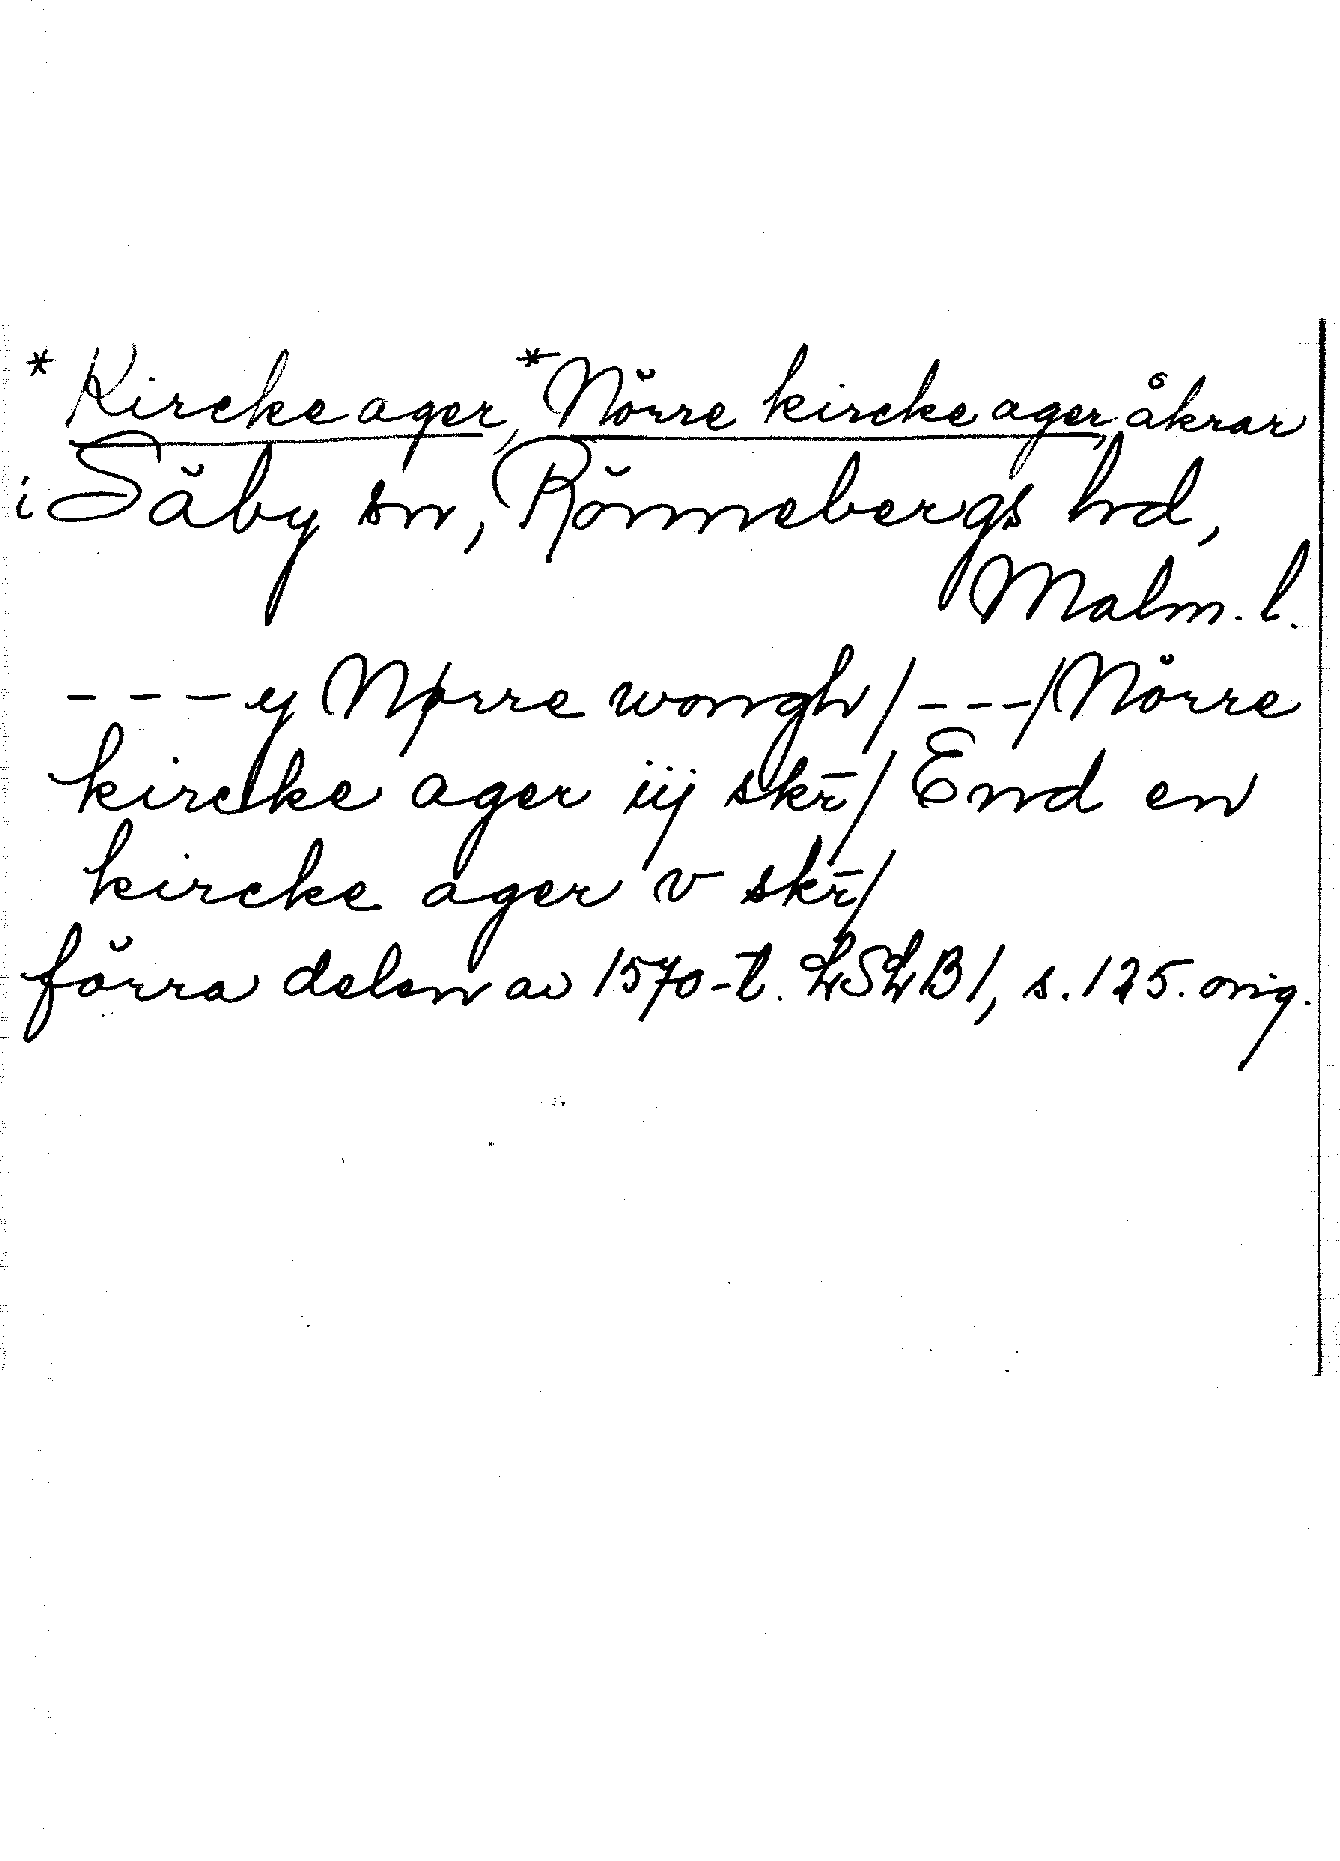 * Kircke ager, * Nörre kircke ager, åkrar
i Säby sn, Rönnebergs hd,
Malm. l.
- - - y Nørre wongh / - - - / Nörre
kircke ager iij skr̄ / End en
kircke ager v skr̄ /
förra delen av 1570-t. LSLB 1, s. 125. orig.